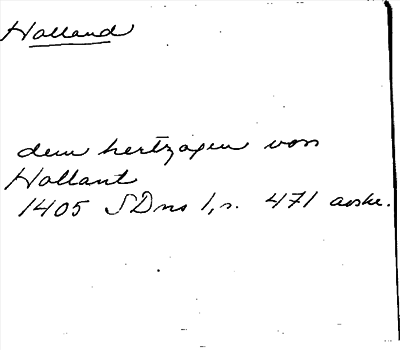 Holland
dem hertzogen von
Hollant
1405 SDns 1, s. 471 avskr.